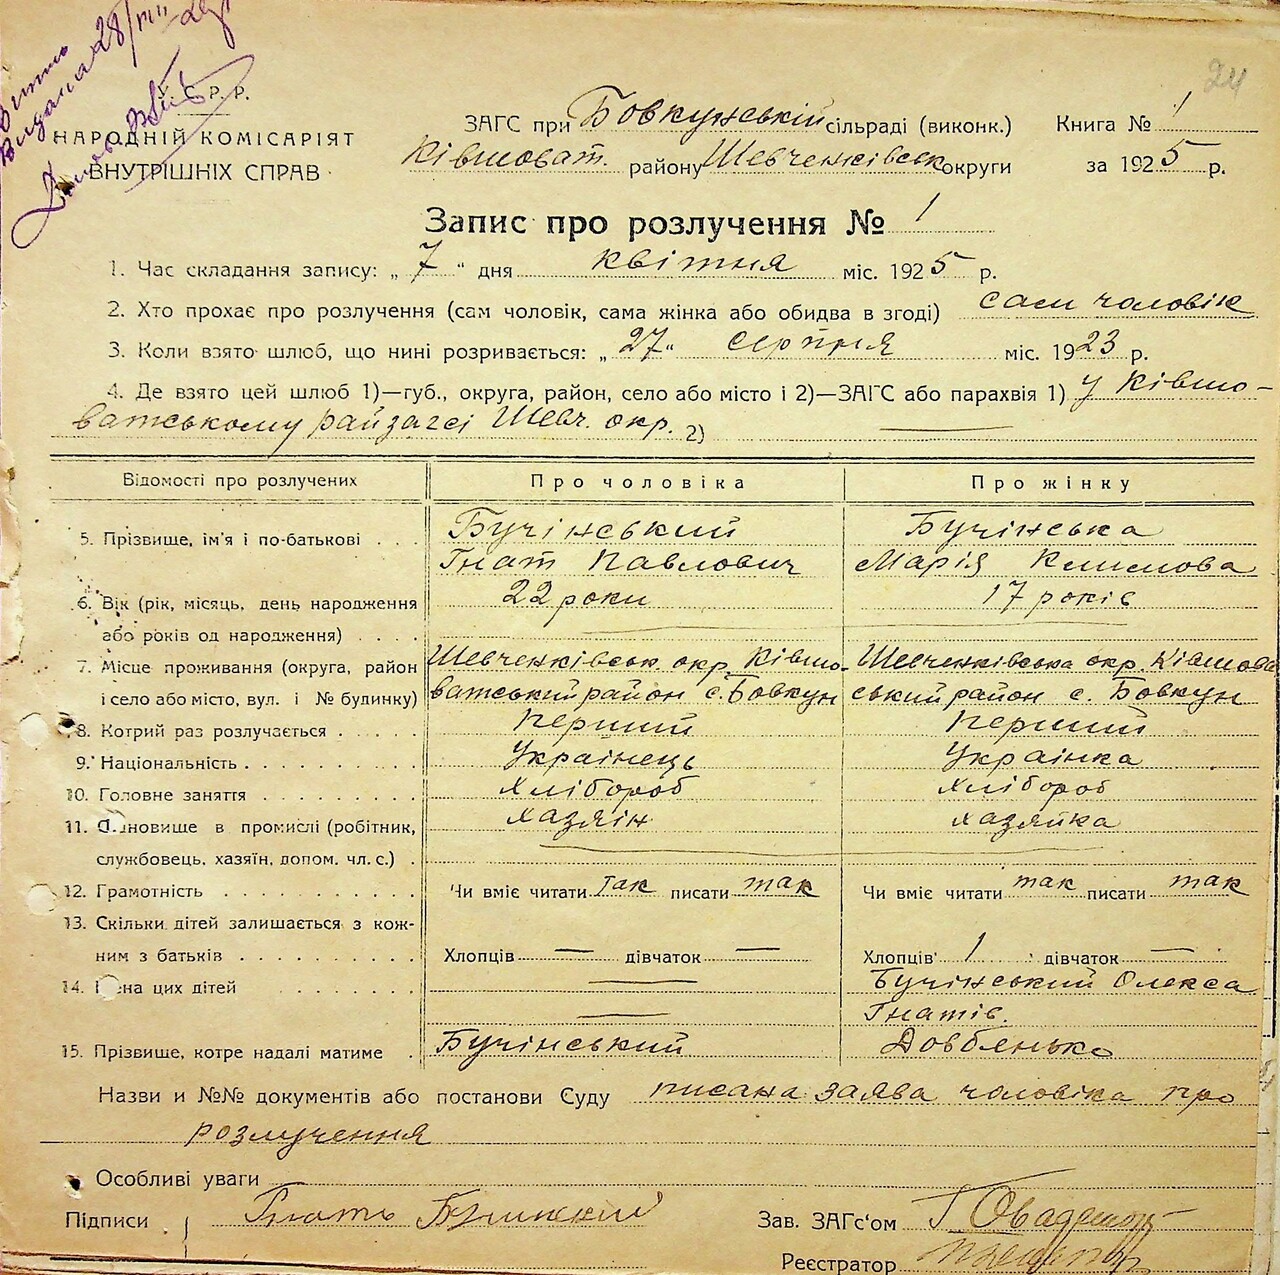 24
У. С. Р. Р.
НАРОДНІЙ КОМІСАРІЯТ
ВНУТРІШНІХ СПРАВ
Видана 28/VIII
ЗАГС при Бовкунській сільраді (виконк.) Книга № 1
Ківшоват. району Шевченківськ округи за 1925 р.
Запис про розлучення № 1
1. Час складання запису: „ 7 " дня квітня міс. 1925 р.
2. Хто прохає про розлучення (сам чоловік, сама жінка або обидва в згоді) сам чоловік
3. Коли взято шлюб, що нині розривається: „ 27 " серпня міс. 1923 р.
4. Де взято цей шлюб 1)—губ., округа, район, село або місто і 2)—ЗАГС або парахвія 1) у Ківшо-
ватському райзагсі Шевч. окр. 2) —
Відомості про розлучених Про чоловіка Про жінку
5. Прізвище, ім'я і по-батькові . . . Бучінський Бучінська
Гнат Павлович Марія Климова
6. Вік (рік, місяць, день народження 22 роки 17 років
або років од народження) . . . .
7. Місце проживання (округа, район Шевченківськ. окр. Ківшо- Шевченківська окр. Ківшова
і село або місто, вул. і № будинку) ватський район с. Бовкун ський район с. Бовкун
8. Котрий раз розлучається . . . . . Перший Перший
9. Національність . . . . . . . . . Українець Українка
10. Головне заняття . . . . . . . . Хлібороб Хлібороб
11. Становище в промислі (робітник, Хазяін хазяйка
службовець, хазяїн, допом. чл. с.) .
12. Грамотність . . . . . . . . . . Чи вміє читати так писати так Чи вміє читати так писати так
13. Скільки дітей залишається з кож-
ним з батьків . . . . . . . . . . Хлопців — дівчаток — Хлопців 1 дівчаток —
14. Імена цих дітей . . . . . . . — Бучінський Олекса
— Гнатів.
15. Прізвище, котре надалі матиме . Бучінський Довбенько
Назви и №№ документів або постанови Суду писана заява чоловіка про
розлучення
Особливі уваги
Підписи Гнать Зав. ЗАГс'ом Г
Реєстратор